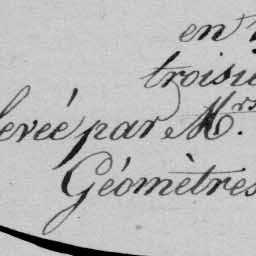 en
troisi
levée par M.rs
Géomètres